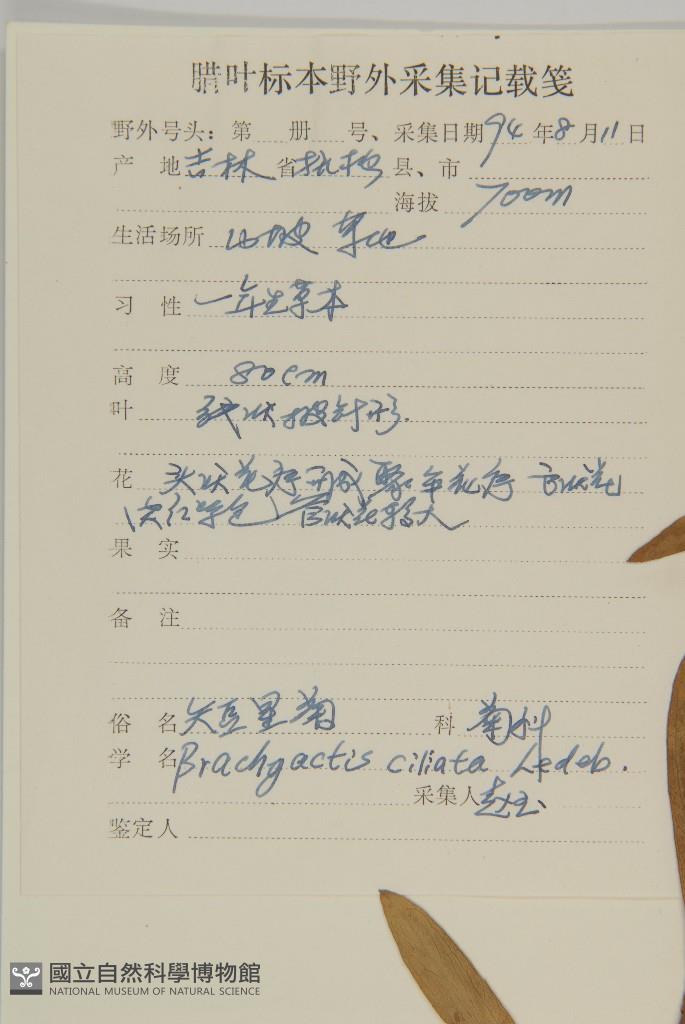 腊叶标本野外采集记载笺
野外号头：第 册 号、采集日期 94 年 8 月 11 日
产 地 吉林 省 县、市
海拔 700m
生活场所 山坡 草地
习 性 一年生草本
高 度 80cm
叶 线状披针形.
花 头状花序 花序
淡红紫色 管状花较大
果 实
备 注
俗 名 短星菊 科 菊科
学 名 Brachyactis ciliata Ledeb.
采集人
鉴定人
國立自然科學博物館
NATIONAL MUSEUM OF NATURAL SCIENCE